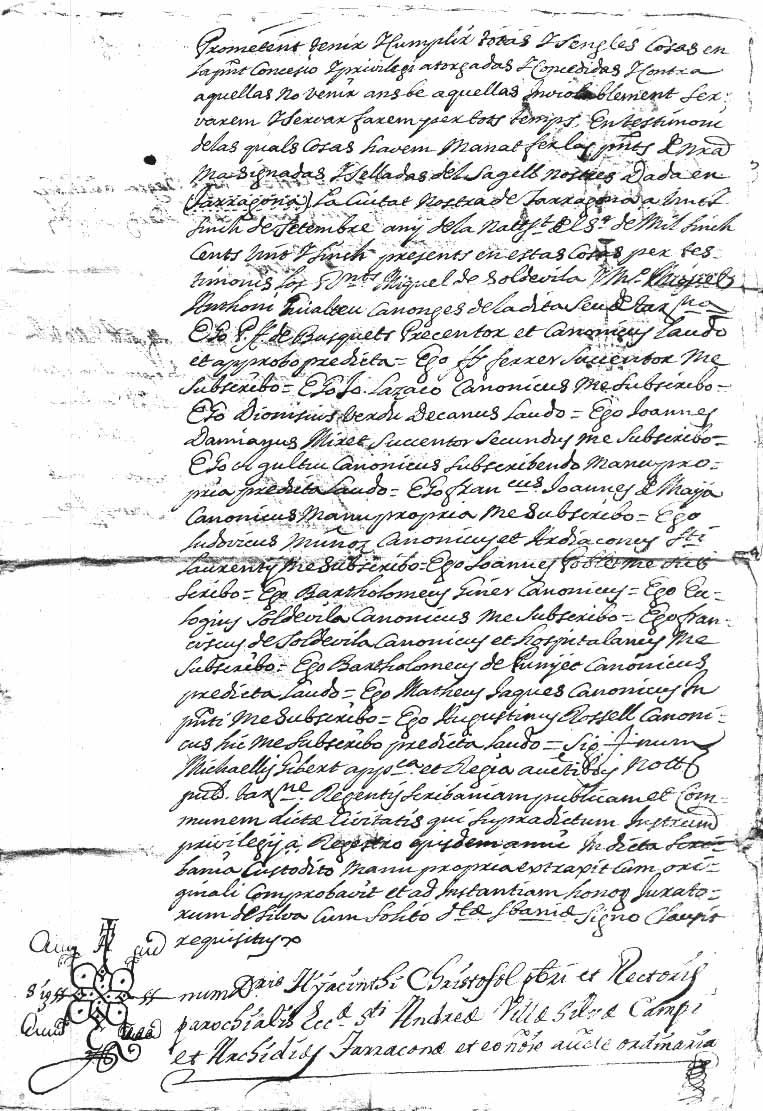 Prometent tenir Y Cumplir totas Y Sengles Cosas en
la pñt Concesio Y privilegi atorgadas Y Concedidas Y Contra
aquellas no venir ans be aquellas Inviolablement ser-
varem Y servar farem per tots temps. En testimoni
de las quals Cosas havem Manat fer las pñts de
Ma signadas Y selladas del sagell nostres Dada en
(Tarragona) la Ciutat Nostra de Tarragona a Vint Y
Sinch de Setembre any de la Natt.t de S.r de Mil Sinch
Cents Vint Y Sinch presents en estas Cosas per tes-
timonis los Miguel de Soldevila Y M.
Anthoni Canonges de la dita Seu de Tar.na
Ego de Busquets Precentor et Canonicus Laudo
et approbo predicta = Ego Ferrer Succentor Me
Subscribo = Ego Jo. Lazaro Canonicus Me Subscribo =
Ego Dionisius Verdu Decanus Laudo = Ego Joannes
Damianus Miret Succentor Secundus me Subscribo =
Ego Canonicus Subscribendo Manu pro-
pria predicta Laudo = Ego Fran.cus Joannes de
Canonicus Manu propria Me Subscribo = Ego
Ludovicus Muñoz Canonicus et Ardiaconus S.ti
Laurentij Me Subscribo = Ego Joannes Poblet me Sub
scribo = Ego Bartholomeus Giner Canonicus = Ego Eu-
logius Soldevila Canonicus Me Subscribo = Ego Fran-
ciscus de Soldevila Canonicus et hospitalarius Me
Subscribo = Ego Bartholomeus de Canonicus
predicta Laudo = Ego Matheus Jaques Canonicus In
pñti Me Subscribo = Ego Augustinus Rossell Canoni-
cus hic Me Subscribo predicta Laudo = Sig+num
Michaellis Gibert app.ca et Regia Nott.
pub. Tar.ne Regentis Scribaniam publicam et Com-
munem dictæ Civitatis qui supradictum Instrum
privilegij a Regestro ejusdem anni In dicta Scri-
bania Custodito Manu propria extraxit Cum ori-
ginali Comprobavit et ad Instantiam honor Jurato-
rum de Silva Cum Solito Signo Clausit
requisitus
Sig
num D.nis Hyacinthi Christofol pbri et Rectoris
parochialis Eccl. S.ti Andreæ Villæ Silvæ Campi
et Archidio Tarracone et eo nõie aucte ordinaria